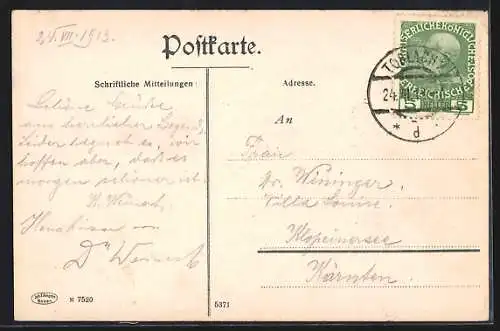 24.VII.1913.
Postkarte.
Schriftliche Mitteilungen
Adresse.
Schöne Grüße
aus herrlicher Gegend,
leider regnet es, wir
hoffen aber, daß es
morgen schöner ist.
Handküsse von
Dr
An
Frau
Dr. Wininger,
Villa Louise,
Klopeinersee
Kärnten.
KAISERLICHE KÖNIGLICHE
ÖSTERREICHISCHE POST
5 HELLER 5
TOBLACH 2
24.VII
* d *
N 7520
5371